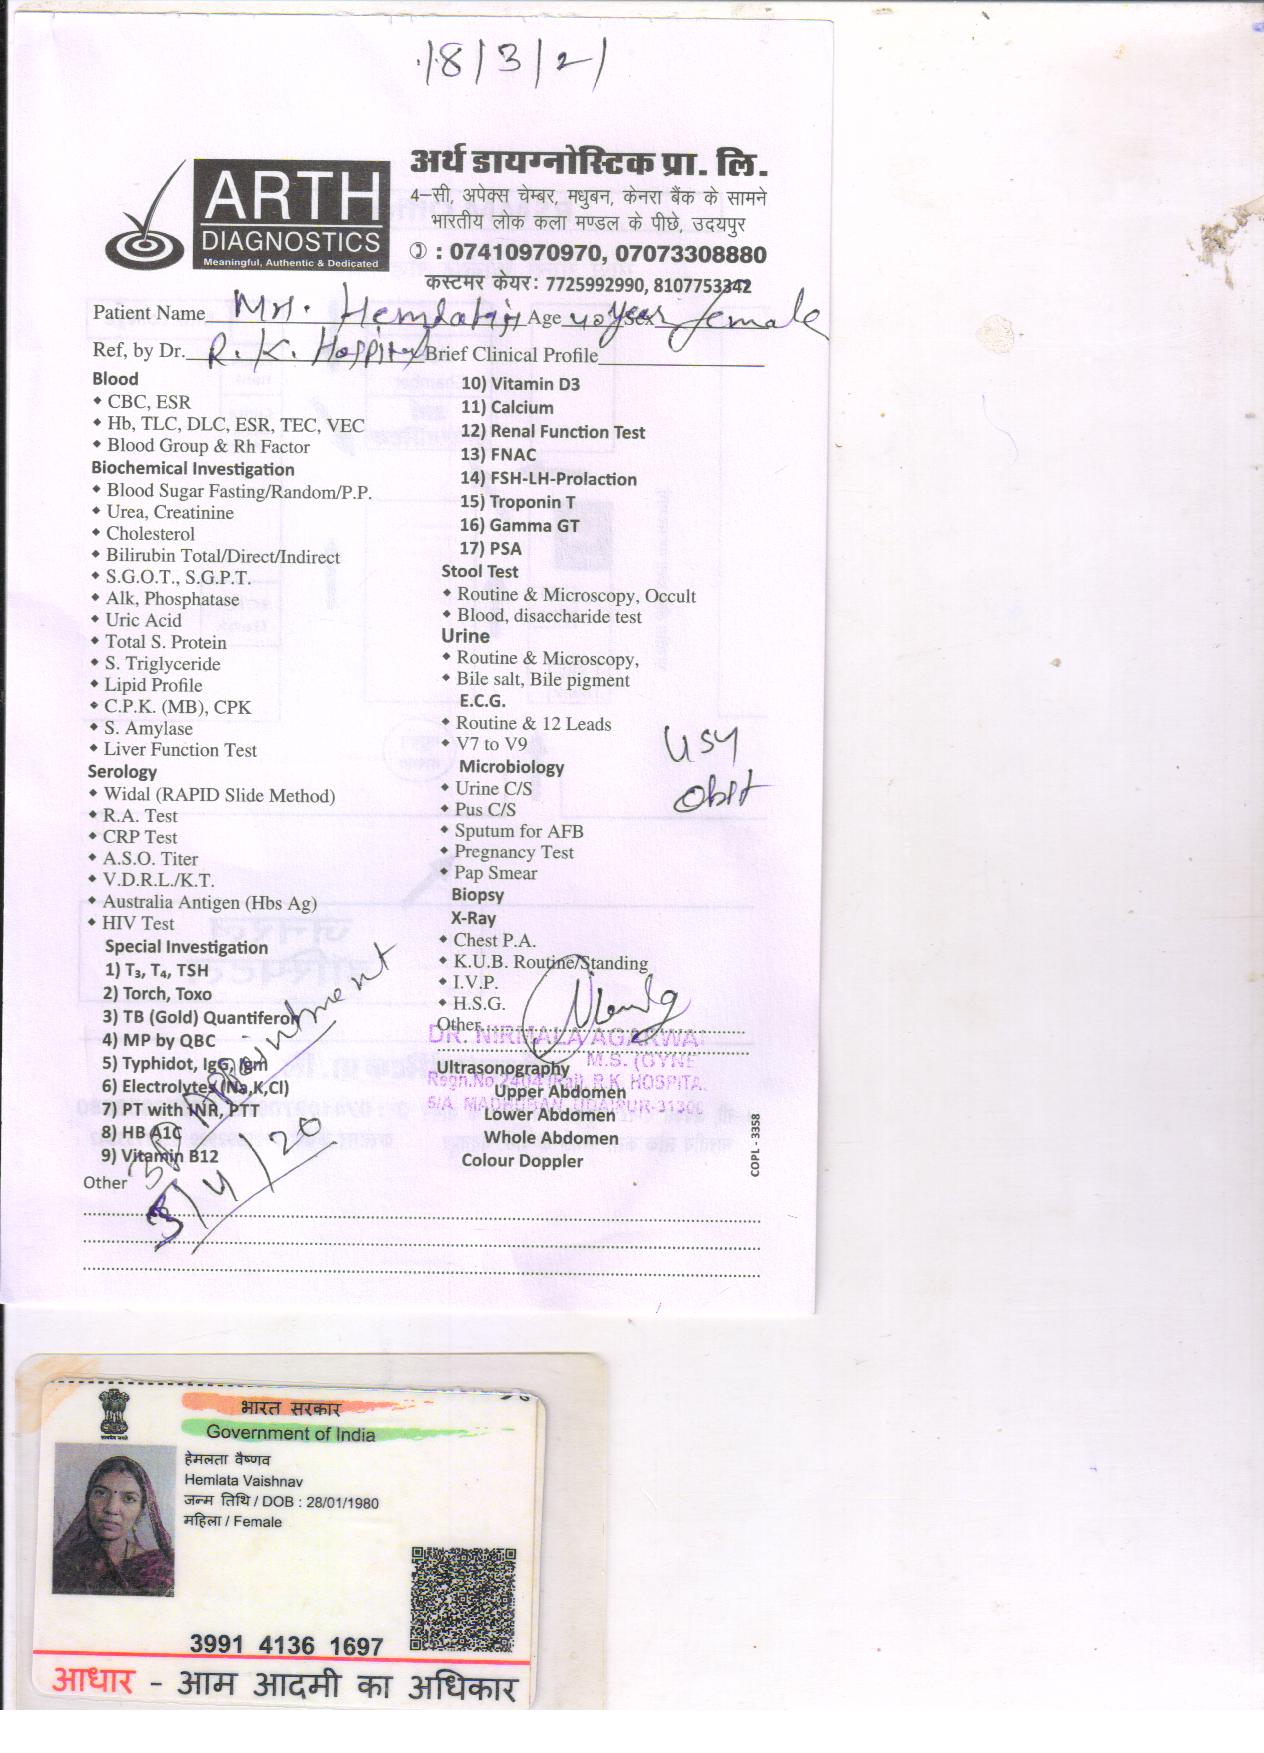 18/3/21
ARTH
DIAGNOSTICS
Meaningful, Authentic & Dedicated
अर्थ डायग्नोस्टिक प्रा. लि.
4–सी, अपेक्स चेम्बर, मधुबन, केनरा बैंक के सामने
भारतीय लोक कला मण्डल के पीछे, उदयपुर
: 07410970970, 07073308880
कस्टमर केयर: 7725992990, 8107753342
Patient Name Mrs. Hemlata Age 40 year Sex female
Ref, by Dr. R.K. Hospital Brief Clinical Profile
Blood
CBC, ESR
Hb, TLC, DLC, ESR, TEC, VEC
Blood Group & Rh Factor
Biochemical Investigation
Blood Sugar Fasting/Random/P.P.
Urea, Creatinine
Cholesterol
Bilirubin Total/Direct/Indirect
S.G.O.T., S.G.P.T.
Alk, Phosphatase
Uric Acid
Total S. Protein
S. Triglyceride
Lipid Profile
C.P.K. (MB), CPK
S. Amylase
Liver Function Test
Serology
Widal (RAPID Slide Method)
R.A. Test
CRP Test
A.S.O. Titer
V.D.R.L./K.T.
Australia Antigen (Hbs Ag)
HIV Test
Special Investigation
1) T₃, T₄, TSH
2) Torch, Toxo
3) TB (Gold) Quantiferon
4) MP by QBC
5) Typhidot, IgG, Igm
6) Electrolytes (Na,K,Cl)
7) PT with INR, PTT
8) HB A1C
9) Vitamin B12
Other
Appointment
3/4/20
10) Vitamin D3
11) Calcium
12) Renal Function Test
13) FNAC
14) FSH-LH-Prolaction
15) Troponin T
16) Gamma GT
17) PSA
Stool Test
Routine & Microscopy, Occult
Blood, disaccharide test
Urine
Routine & Microscopy,
Bile salt, Bile pigment
E.C.G.
Routine & 12 Leads
V7 to V9
Microbiology
Urine C/S
Pus C/S
Sputum for AFB
Pregnancy Test
Pap Smear
Biopsy
X-Ray
Chest P.A.
K.U.B. Routine/Standing
I.V.P.
H.S.G.
Other
USG
DR. NIRMALA AGARWA
M.S. (GYNE
Regn.No.2404 (Raj) R.K. HOSPITA
5/A, MADHUBAN, UDAIPUR-3130
Ultrasonography
Upper Abdomen
Lower Abdomen
Whole Abdomen
Colour Doppler
COPL - 3358
भारत सरकार
Government of India
हेमलता वैष्णव
Hemlata Vaishnav
जन्म तिथि / DOB : 28/01/1980
महिला / Female
3991 4136 1697
आधार - आम आदमी का अधिकार